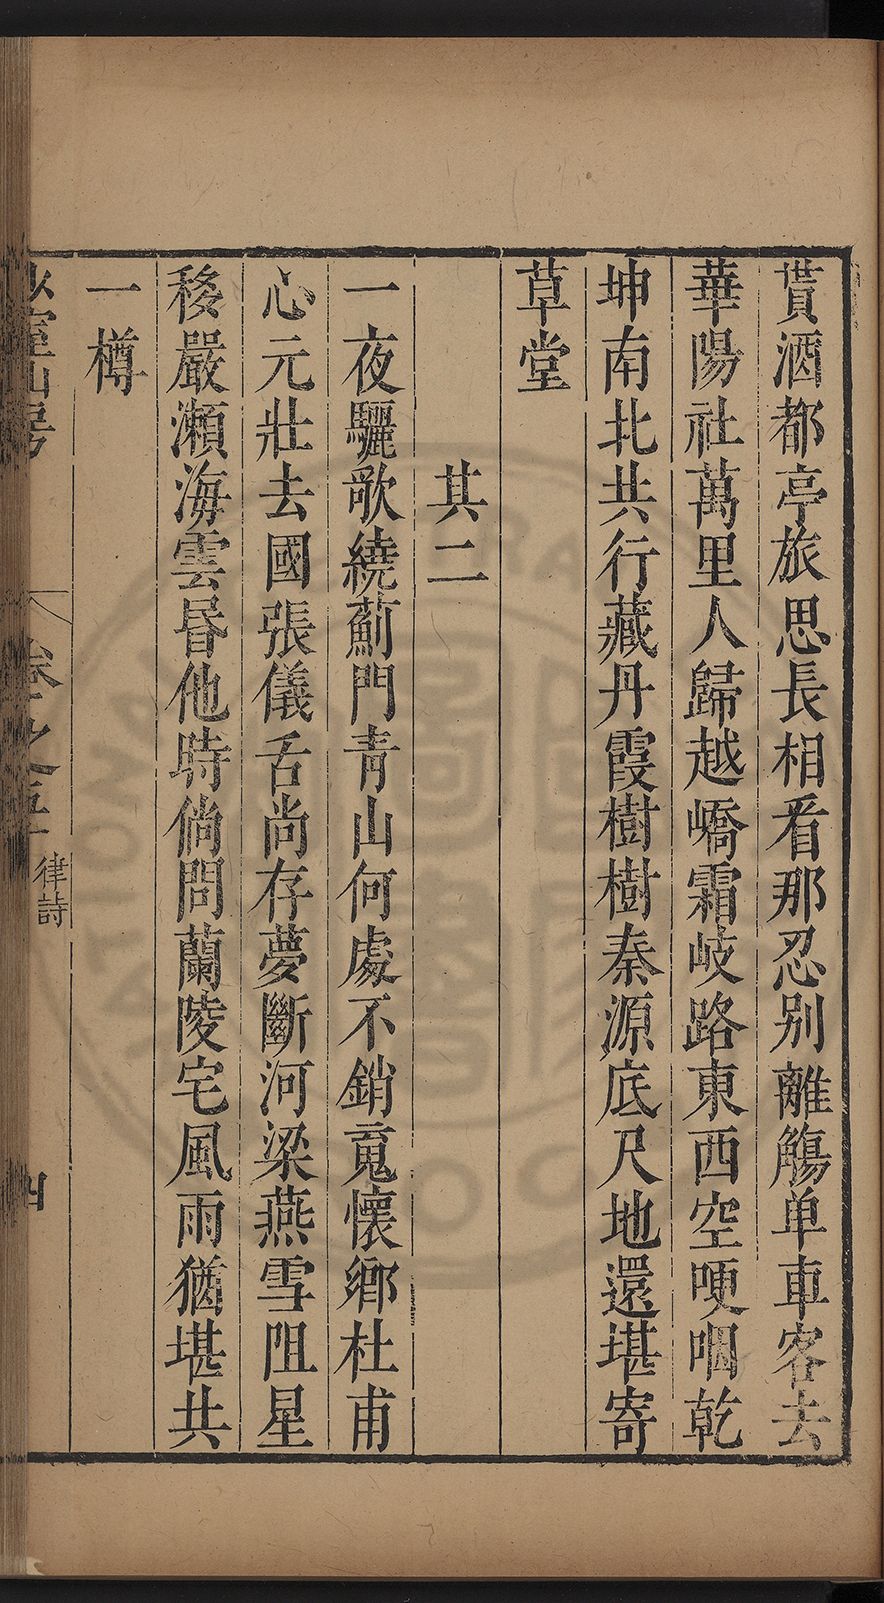 貰酒都亭旅思長相看那忍别離觴单車客去
華陽社萬里人歸越嶠霜岐路東西空哽咽乾
坤南北共行藏丹霞樹樹秦源底尺地還堪寄
草堂
其二
一夜驪歌繞薊門青山何處不銷䰟懷鄉杜甫
心元壯去國張儀舌尚存夢斷河梁燕雪阻星
移嚴瀨海雲昬他時倘問蘭陵宅風雨猶堪共
一樽
室山房
卷之五
律詩
四